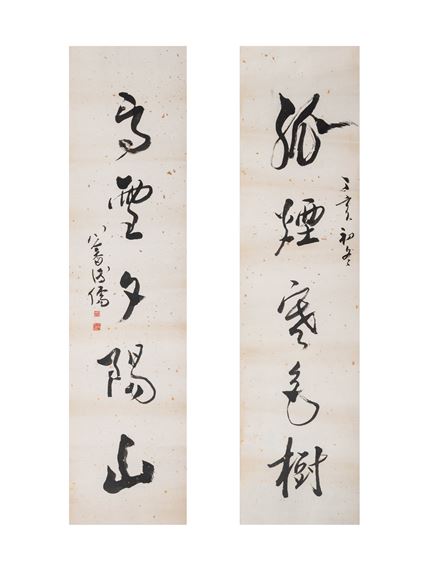 孤煙寒色樹
丁亥初冬
高雪夕陽山
心畬溥儒